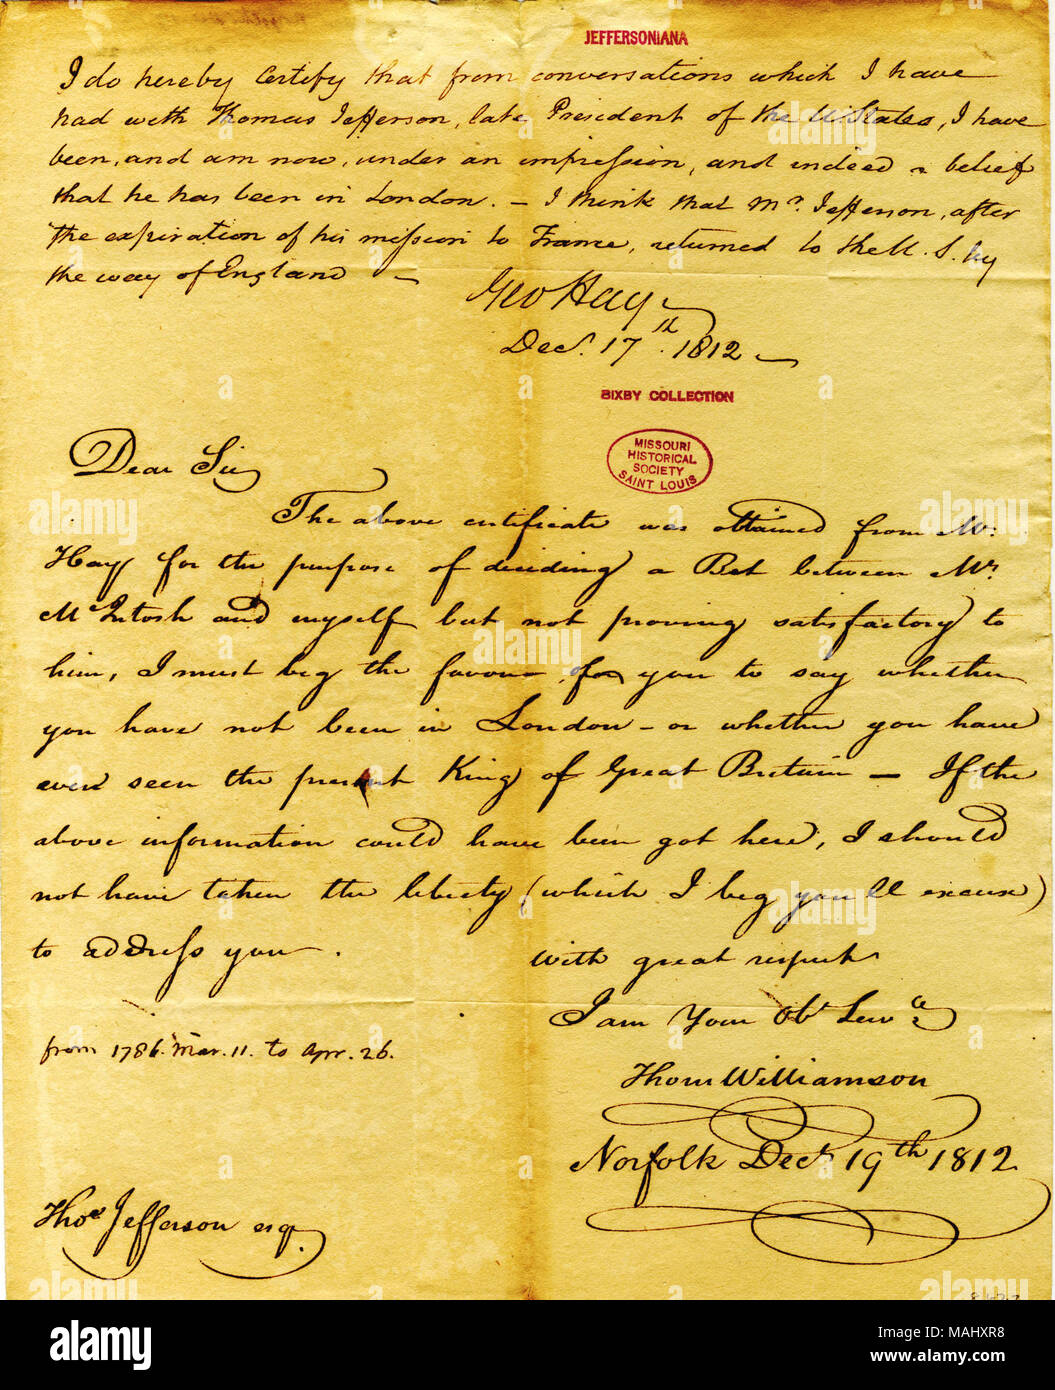 JEFFERSONIANA
I do hereby Certify that from conversations which I have
had with Thomas Jefferson, late President of the U States, I have
been, and am now, under an impression, and indeed a belief
that he has been in London. — I think that Mr. Jefferson, after
the expiration of his mission to France, returned to the U. S. by
the way of England —
Geo Hay
Decr. 17th. 1812 —
BIXBY COLLECTION
MISSOURI
HISTORICAL
SOCIETY
SAINT LOUIS
Dear Sir
The above certificate was obtained from Mr.
Hay for the purpose of deciding a Bet between Mr.
McIntosh and myself but not proving satisfactory to
him, I must beg the favour of you to say whether
you have not been in London — or whether you have
ever seen the present King of Great Britain — If the
above information could have been got here, I should
not have taken the liberty (which I beg you'll excuse)
to address you.
With great respect
I am Your Obt Servce
from 1786. Mar. 11. to Apr. 26.
Thom Williamson
Norfolk Decr 19th 1812
Thos Jefferson esq.
alamy
Image ID: MAHXR8
www.alamy.com